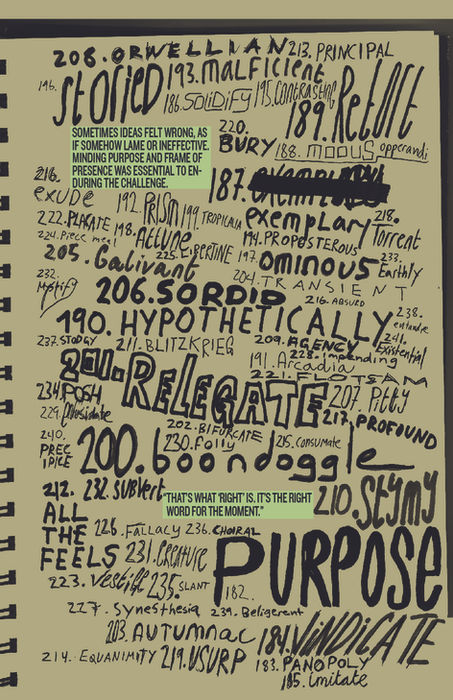 208. ORWELLIAN 213. PRINCIPAL
196. STORIED 193. MALFICIENT
186. SOLIDIFY 195. CONTRASTING
189. Retort
SOMETIMES IDEAS FELT WRONG, AS
IF SOMEHOW LAME OR INEFFECTIVE.
MINDING PURPOSE AND FRAME OF
PRESENCE WAS ESSENTIAL TO EN-
DURING THE CHALLENGE.
220. BURY
188. MODUS opperandi
187.
exemplary
216. exude
192. PRISM 199. TROPICALIA
218. Torrent
222. PLACATE 198. Attune
194. PROPOSTEROUS
224. Piece meal
225. LIBERTINE 197. OMINOUS 233. Earthly
205. Galivant
204. TRANSIENT
232. Mystify
206. SORDID 216. ABSURD
190. HYPOTHETICALLY 238.
237. STODGY 211. BLITZKRIEG 209. AGENCY 241. Existential
191. Arcadia 228. Impending
201. RELEGATE 221. FLOTSAM
234. POSH 207. Pitty
229. 217. PROFOUND
202. BIFURCATE
240. PRECIPICE 200. boondoggle
230. Folly 215. CONSUMATE
212. ALL THE FEELS 232. SUBVERT
"THAT'S WHAT 'RIGHT' IS. IT'S THE RIGHT
WORD FOR THE MOMENT."
210. Stymy
226. FALLACY 236. CHORAL
231. CREATURE 182. PURPOSE
223. Vestige 235. SLANT
227. Synesthesia 239. Beligerent
203. AUTUMNAL 184. VINDICATE
214. EQUANIMITY 219. USURP 183. PANOPOLY
185. Imitate